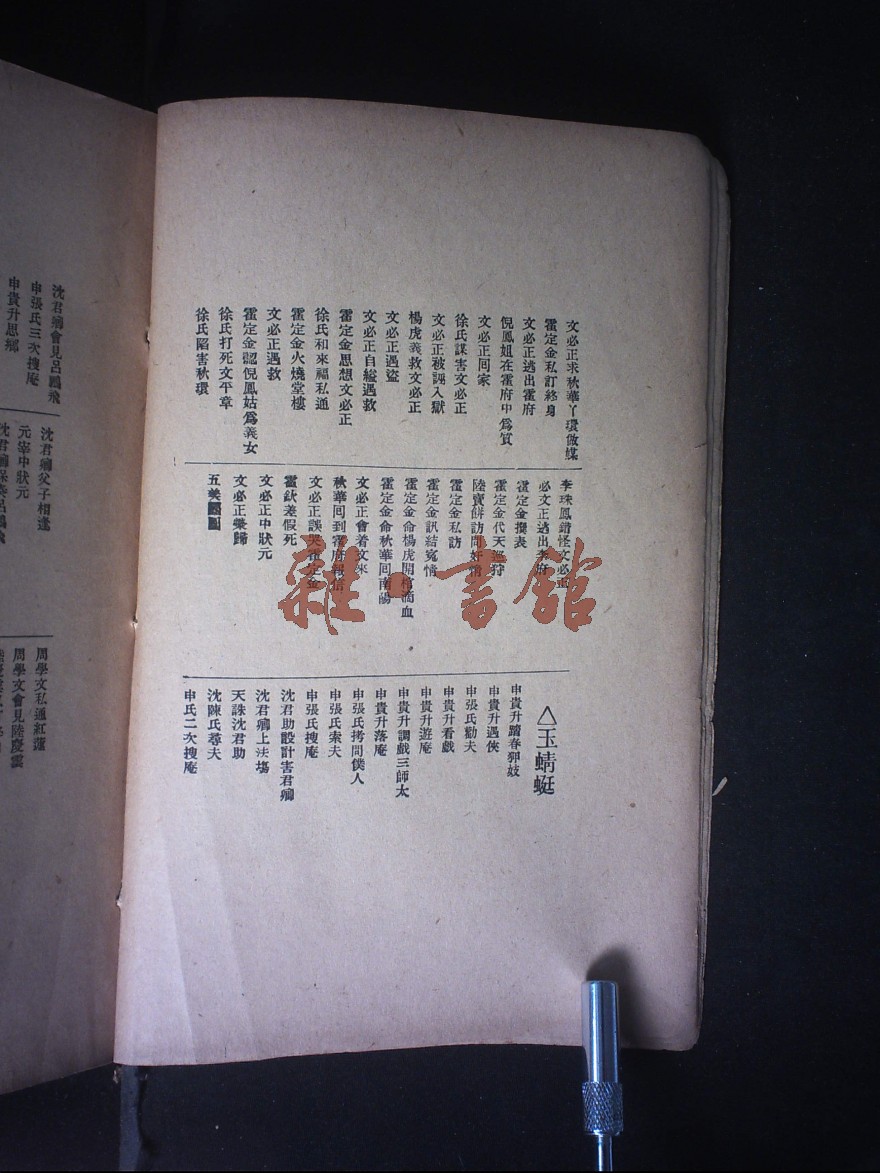 文必正求秋華丫環做媒
霍定金私訂終身
文必正逃出霍府
倪鳳姐在霍府中爲質
文必正回家
徐氏謀害文必正
文必正被誣入獄
楊虎義救文必正
文必正遇盜
文必正自縊遇救
霍定金思想文必正
徐氏和來福私通
霍定金火燒堂樓
文必正遇救
霍定金認倪鳳姑爲義女
徐氏打死文平章
徐氏陷害秋環
李珠鳳錯怪文必正
必文正逃出李府
霍定金撥表
霍定金代天巡狩
陸賣餅訪問奸情
霍定金私訪
霍定金訊結冤情
霍定金命楊虎開棺滴血
霍定金命秋華回南陽
文必正會着文來
秋華回到霍府報信
文必正誤哭霍定金
霍欽差假死
文必正中狀元
文必正榮歸
五美團圓
△玉蜻蜓
申貴升踏春狎妓
申貴升遇俠
申張氏勸夫
申貴升看戲
申貴升遊庵
申貴升調戲三師太
申貴升落庵
申張氏拷問僕人
申張氏索夫
申張氏搜庵
沈君助設計害君卿
沈君卿上法場
天誅沈君助
沈陳氏尋夫
申氏二次搜庵
沈君卿會見呂鵬飛
申張氏三次搜庵
申貴升思鄉
沈君卿父子相逢
元宰中狀元
周學文私通紅蓮
周學文會見陸慶雲
雜·書館